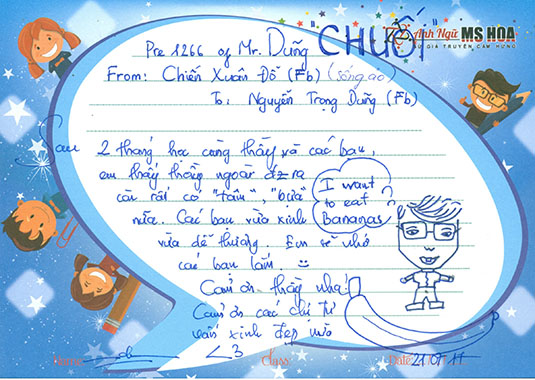 Pre 1266 of Mr. Dũng "CHUỐI"
Anh Ngữ MS HOA
SỨ GIẢ TRUYỀN CẢM HỨNG
From: Chiến Xuân Đỗ (Fb) (sống ảo)
To: Nguyễn Trọng Dũng (Fb)
Sau 2 tháng học cùng thầy và các bạn,
em thấy thầy ngoài đz ra
còn rất có "tâm", "bựa"
nữa. Các bạn vừa xinh
vừa dễ thương. Em sẽ nhớ
các bạn lắm.
I want
to eat
Bananas
Cảm ơn thầy nha!
Cảm ơn các chị tư
vấn xinh đẹp nữa
<3
Name:
Class:
Date: 21/07/17